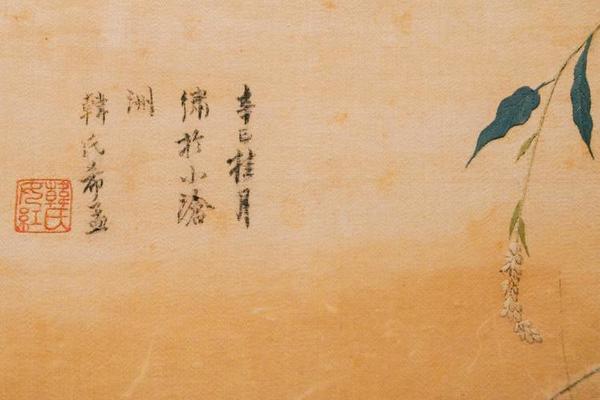 辛巳桂月
绣於小滄
洲
韓氏希孟
韓氏女紅